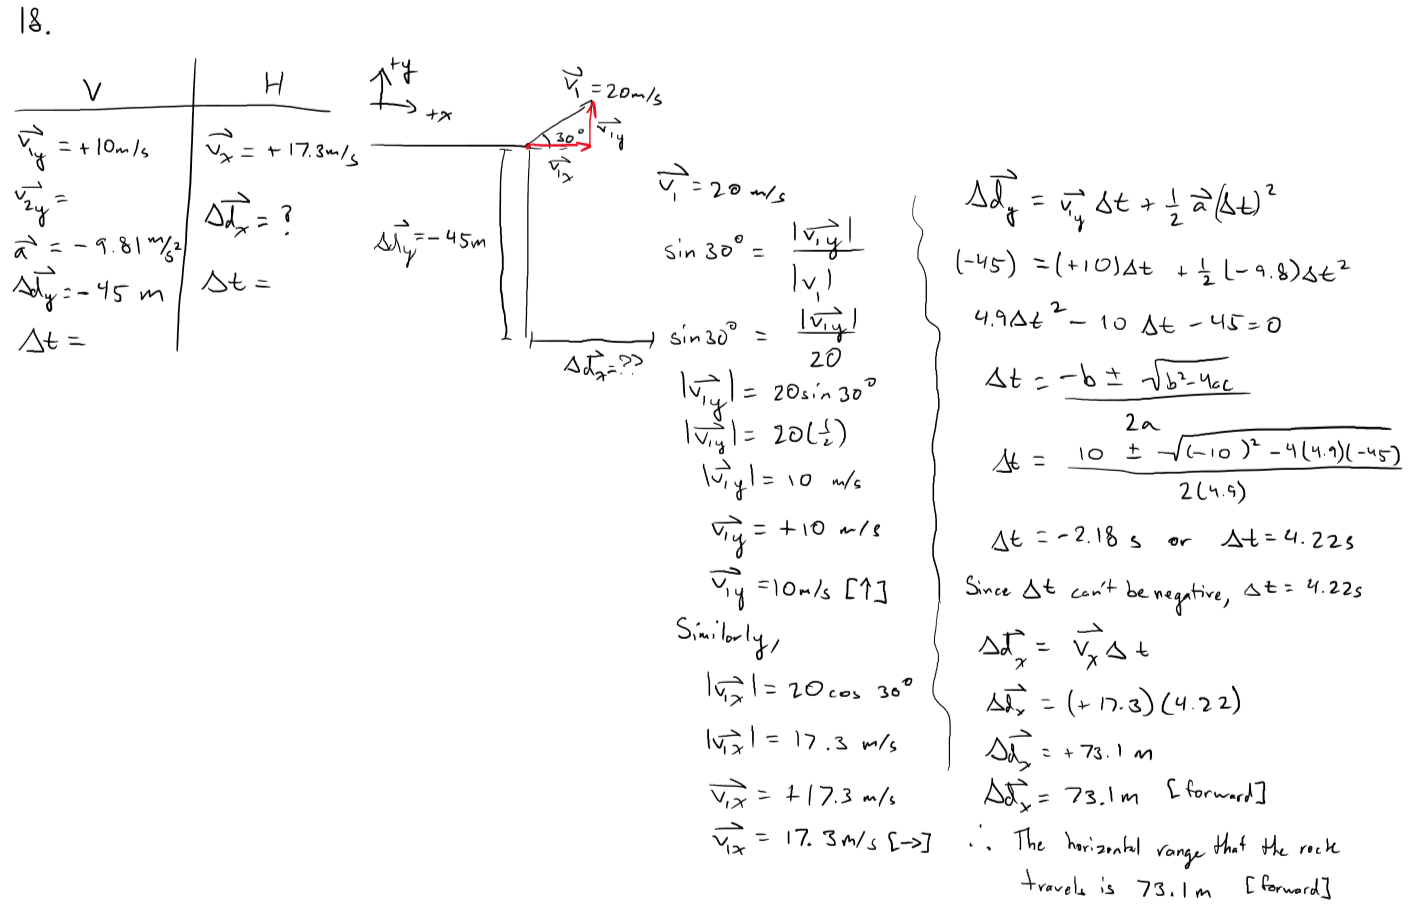 18.
V H
v⃗₁y = +10m/s
v⃗₂y =
a⃗ = -9.81 m/s²
Δd⃗y = -45 m
Δt =
v⃗x = +17.3m/s
Δd⃗x = ?
Δt =
+y
+x
v⃗₁ = 20m/s
30°
v⃗₁y
v⃗₁x
Δd⃗y = -45m
Δd⃗x = ??
v⃗₁ = 20 m/s
sin 30° = |v⃗₁y| / |v₁|
sin 30° = |v⃗₁y| / 20
|v⃗₁y| = 20sin 30°
|v⃗₁y| = 20(1/2)
|v⃗₁y| = 10 m/s
v⃗₁y = +10 m/s
v⃗₁y = 10m/s [↑]
Similarly,
|v⃗₁x| = 20 cos 30°
|v⃗₁x| = 17.3 m/s
v⃗₁x = +17.3 m/s
v⃗₁x = 17.3m/s [→]
Δd⃗y = v⃗₁y Δt + 1/2 a⃗ (Δt)²
(-45) = (+10)Δt + 1/2 (-9.8)Δt²
4.9Δt² - 10 Δt - 45 = 0
Δt = (-b ± √(b²-4ac)) / 2a
Δt = (10 ± √((-10)² - 4(4.9)(-45))) / 2(4.9)
Δt = -2.18 s or Δt = 4.22s
Since Δt can't be negative, Δt = 4.22s
Δd⃗x = v⃗x Δt
Δd⃗x = (+17.3)(4.22)
Δd⃗x = +73.1 m
Δd⃗x = 73.1m [forward]
∴ The horizontal range that the rock
travels is 73.1m [forward]